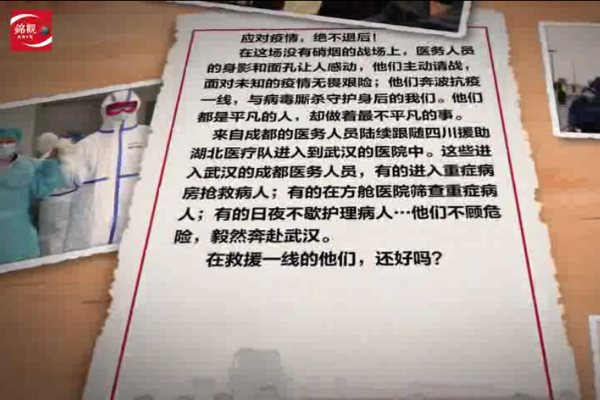 錦觀
应对疫情，绝不退后！
在这场没有硝烟的战场上，医务人员
的身影和面孔让人感动，他们主动请战，
面对未知的疫情无畏艰险；他们奔波抗疫
一线，与病毒厮杀守护身后的我们。他们
都是平凡的人，却做着最不平凡的事。
来自成都的医务人员陆续跟随四川援助
湖北医疗队进入到武汉的医院中。这些进
入武汉的成都医务人员，有的进入重症病
房抢救病人；有的在方舱医院筛查重症病
人；有的日夜不歇护理病人…他们不顾危
险，毅然奔赴武汉。
在救援一线的他们，还好吗？